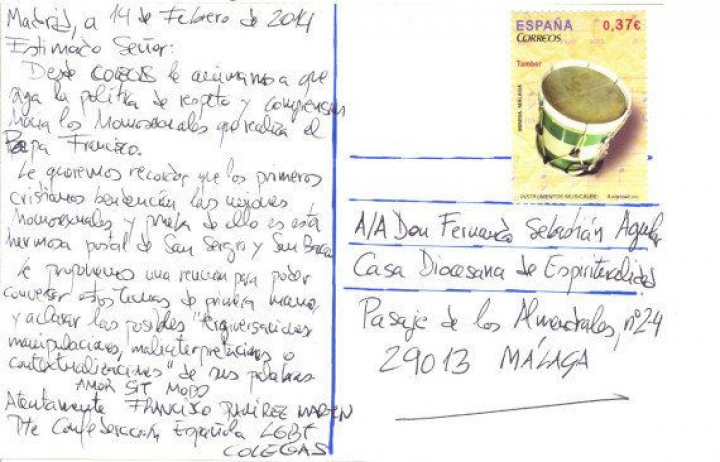 Madrid, a 14 de Febrero de 2014
Estimado Señor:
Desde COLEGAS le animamos a que
siga la política de respeto y comprensión
hacia los Homosexuales que realiza el
Papa Francisco.
Le queremos recordar que los primeros
cristianos bendecían las uniones
homosexuales y prueba de ello es esta
hermosa postal de San Sergio y San Baco
Le proponemos una reunión para poder
conversar estos temas de primera mano
y aclarar las posibles "tergiversaciones
manipulaciones, malinterpretaciones o
contextualizaciones" de sus palabras.
AMOR SIT MODO
Atentamente FRANCISCO
Pte Confederación Española LGBT
COLEGAS
ESPAÑA 0,37€
CORREOS
Tambor
INSTRUMENTOS MUSICALES
A/A Don Fernando Sebastián Aguilar
Casa Diocesana de Espiritualidad
Pasaje de los Almendrales, nº24
29013 MÁLAGA